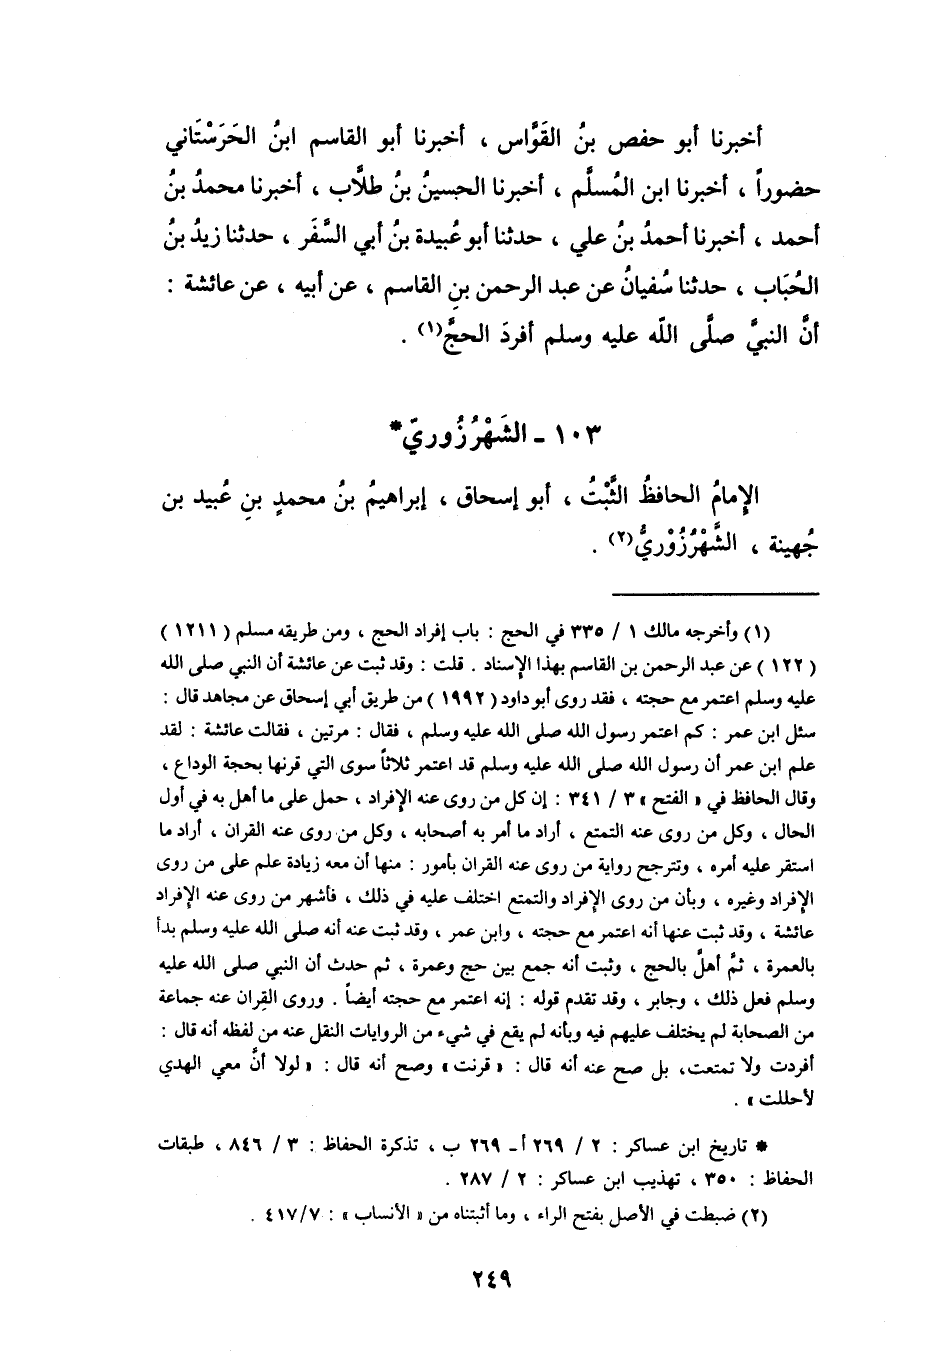 أخبرنا أبو حفص بنُ القَوَّاس ، أخبرنا أبو القاسم ابنُ الحَرَسْتَاني
حضوراً ، أخبرنا ابن المُسلَّم ، أخبرنا الحسينُ بنُ طلَّاب ، أخبرنا محمدُ بنُ
أحمد ، أخبرنا أحمدُ بنُ علي ، حدثنا أبو عُبيدة بنُ أبي السَّفَر ، حدثنا زيدُ بنُ
الحُبَاب ، حدثنا سُفيانُ عن عبد الرحمن بنِ القاسم ، عن أبيه ، عن عائشة :
أنَّ النبيَّ صلَّى اللّه عليه وسلم أفردَ الحجَّ(١) .
١٠٣ ـ الشَهْرُزُوريّ*
الإِمامُ الحافظُ الثَّبْتُ ، أبو إسحاق ، إبراهيمُ بنُ محمدٍ بنِ عُبيد بن
جُهينة ، الشَّهْرُزُوْريُّ(٢) .
(١) وأخرجه مالك ١ / ٣٣٥ في الحج : باب إفراد الحج ، ومن طريقه مسلم ( ١٢١١ )
( ١٢٢ ) عن عبد الرحمن بن القاسم بهذا الإِسناد . قلت : وقد ثبت عن عائشة أن النبي صلى الله
عليه وسلم اعتمر مع حجته ، فقد روى أبو داود ( ١٩٩٢ ) من طريق أبي إسحاق عن مجاهد قال :
سئل ابن عمر : كم اعتمر رسول الله صلى الله عليه وسلم ، فقال : مرتين ، فقالت عائشة : لقد
علم ابن عمر أن رسول الله صلى الله عليه وسلم قد اعتمر ثلاثاً سوى التي قرنها بحجة الوداع ،
وقال الحافظ في « الفتح » ٣ / ٣٤١ : إن كل من روى عنه الإِفراد ، حمل على ما أهل به في أول
الحال ، وكل من روى عنه التمتع ، أراد ما أمر به أصحابه ، وكل من روى عنه القران ، أراد ما
استقر عليه أمره ، وتترجح رواية من روى عنه القران بأمور : منها أن معه زيادة علم على من روى
الإِفراد وغيره ، وبأن من روى الإِفراد والتمتع اختلف عليه في ذلك ، فأشهر من روى عنه الإِفراد
عائشة ، وقد ثبت عنها أنه اعتمر مع حجته ، وابن عمر ، وقد ثبت عنه أنه صلى الله عليه وسلم بدأ
بالعمرة ، ثمَّ أهلَّ بالحج ، وثبت أنه جمع بين حج وعمرة ، ثم حدث أن النبي صلى الله عليه
وسلم فعل ذلك ، وجابر ، وقد تقدم قوله : إنه اعتمر مع حجته أيضاً . وروى القِران عنه جماعة
من الصحابة لم يختلف عليهم فيه وبأنه لم يقع في شيء من الروايات النقل عنه من لفظه أنه قال :
أفردت ولا تمتعت، بل صح عنه أنه قال : « قرنت » وصح أنه قال : « لولا أنَّ معي الهدي
لأحللت » .
* تاريخ ابن عساكر : ٢ / ٢٦٩ أ ـ ٢٦٩ ب ، تذكرة الحفاظ : ٣ / ٨٤٦ ، طبقات
الحفاظ : ٣٥٠ ، تهذيب ابن عساكر : ٢ / ٢٨٧ .
(٢) ضبطت في الأصل بفتح الراء ، وما أثبتناه من « الأنساب » : ٤١٧/٧ .
٢٤٩